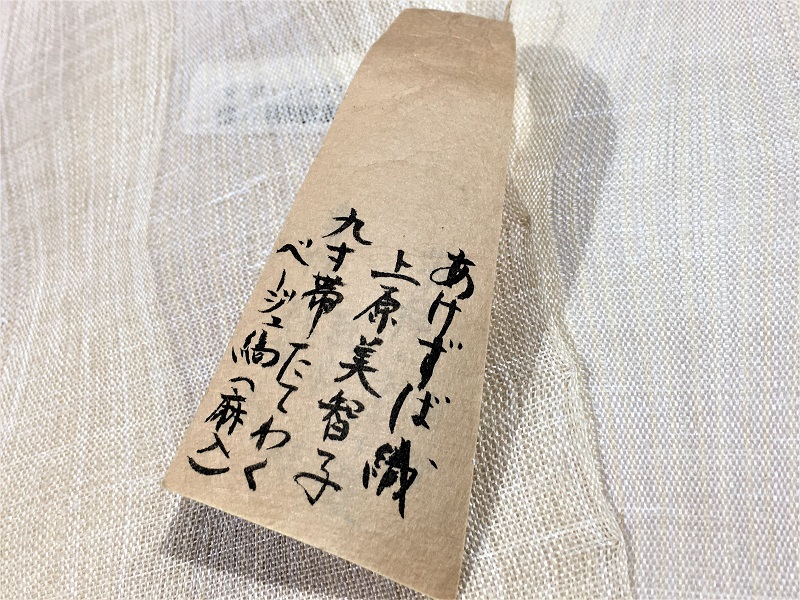 あけずば織
上原美智子
九寸帯たてわく
ベージュ縞(麻入)